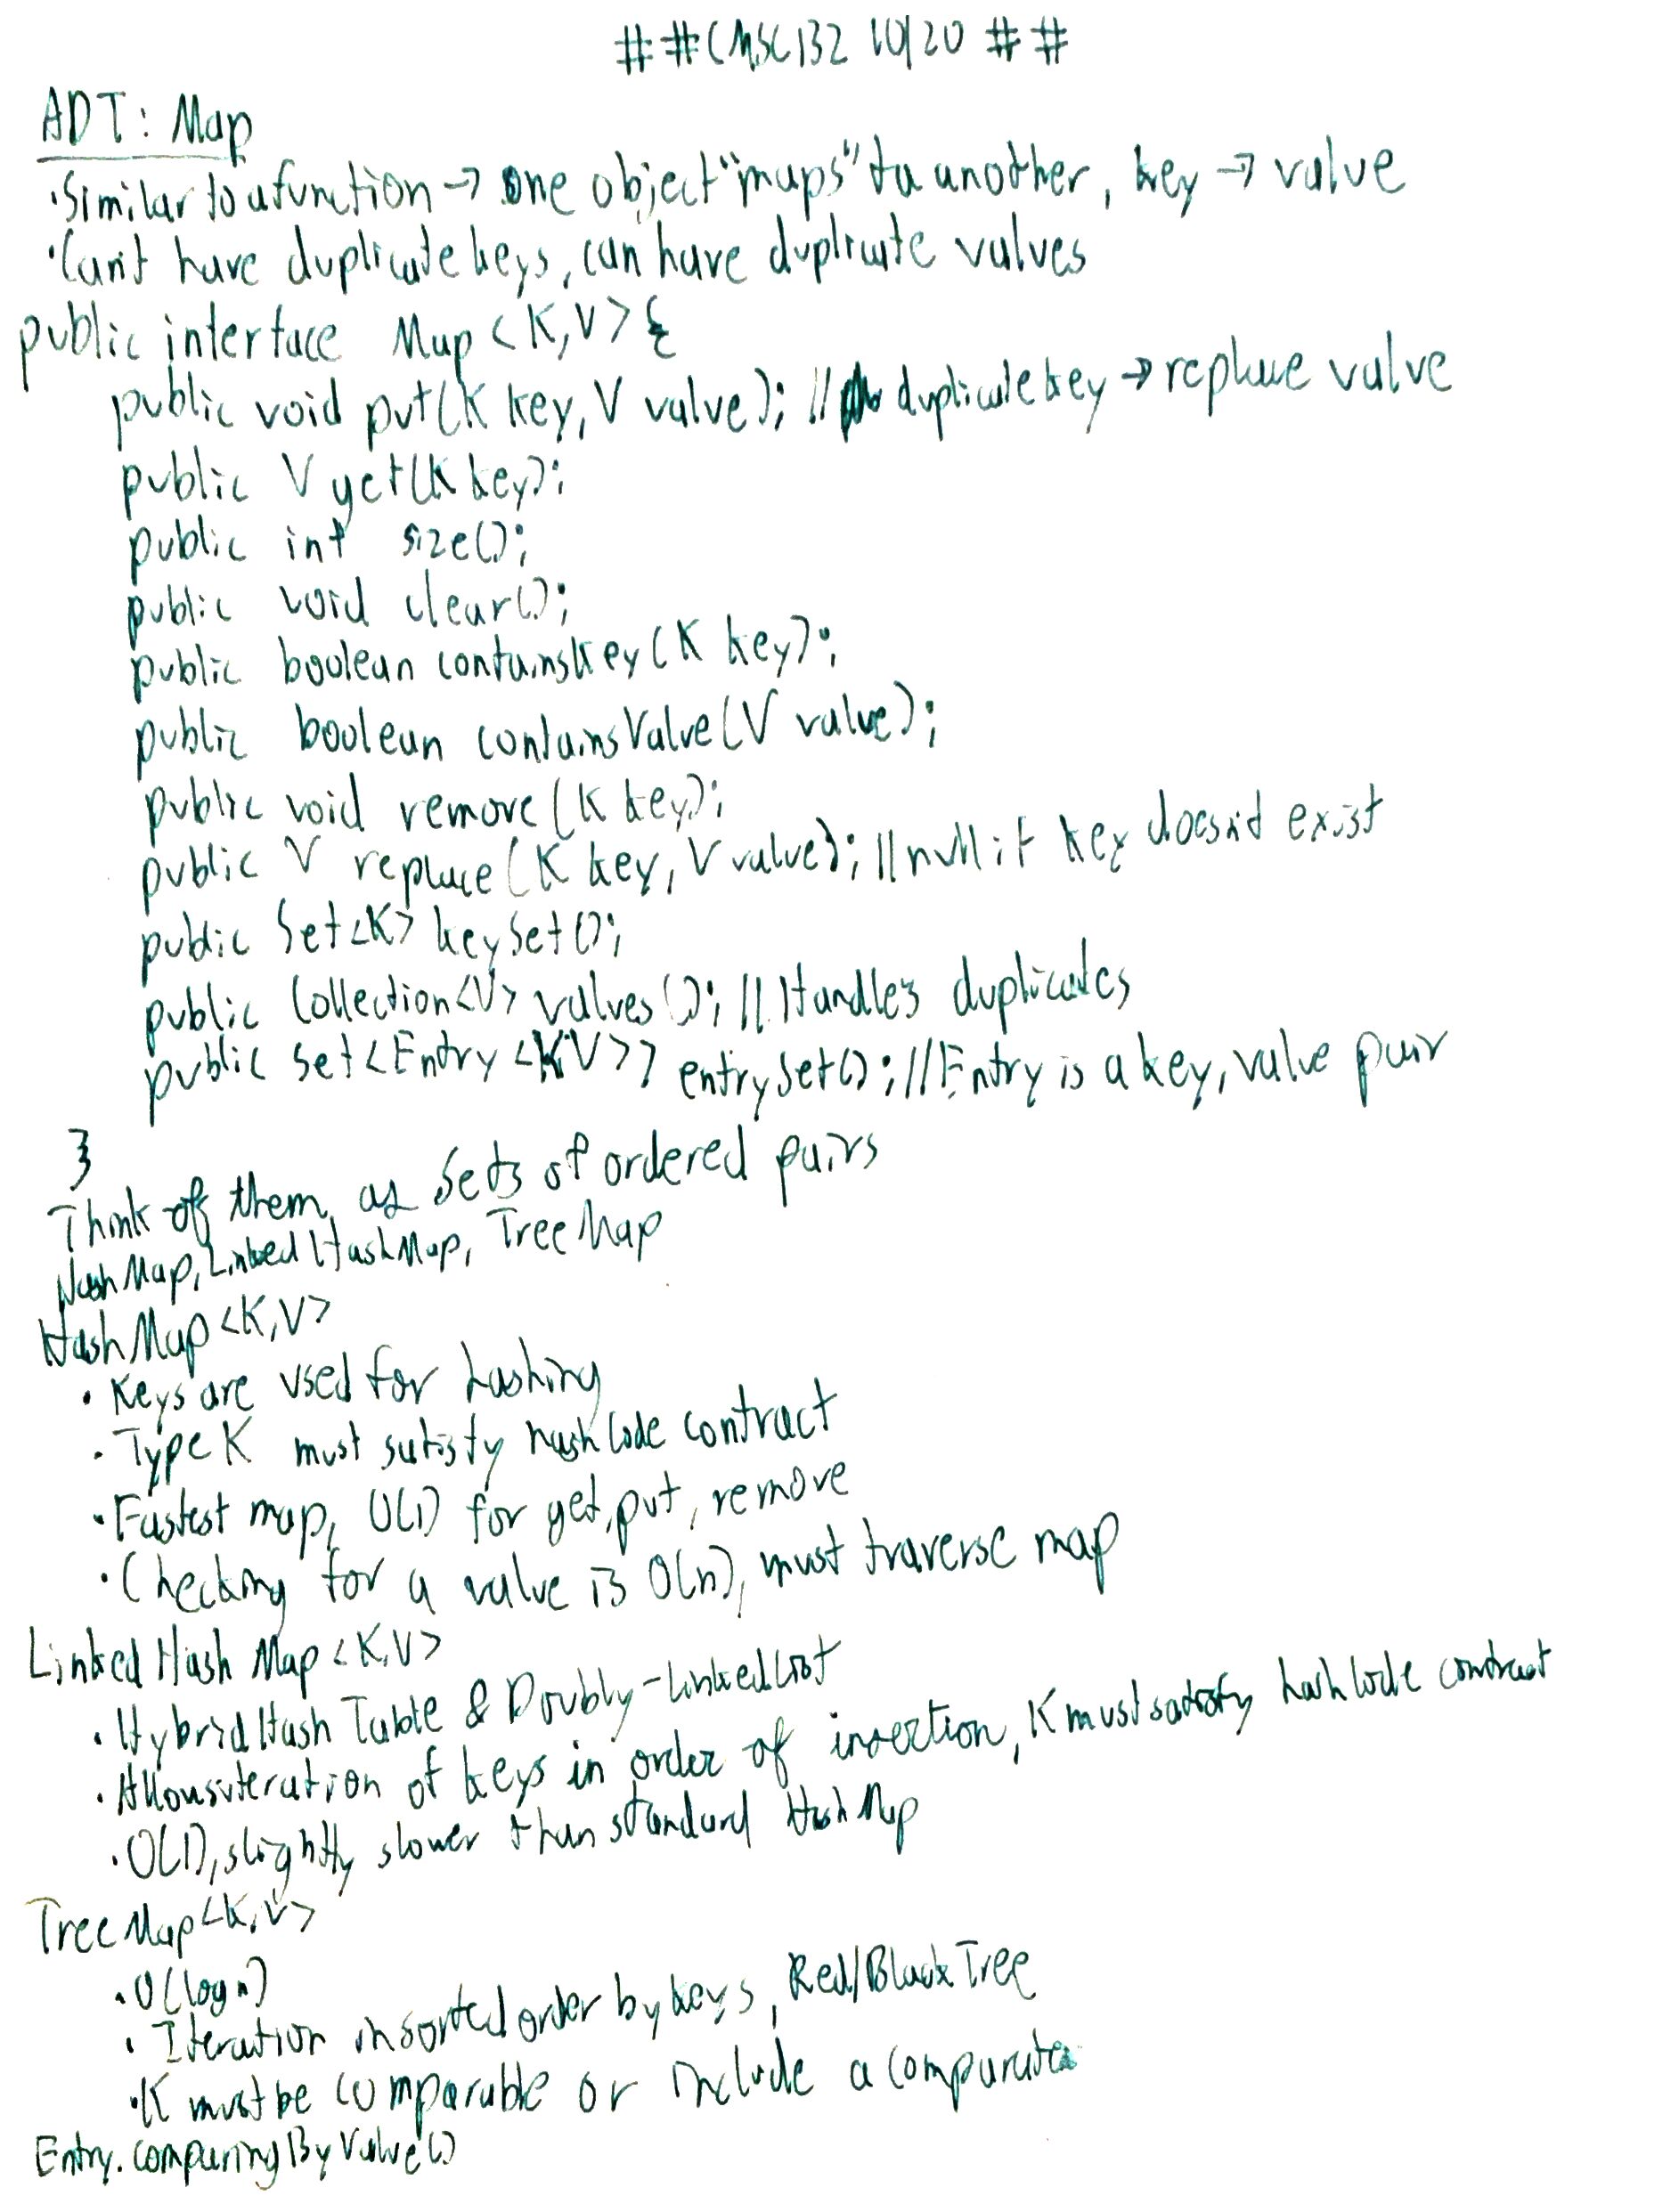 ##CMSC132 10/20 ##
ADT: Map
·Similar to a function → one object "maps" to another, key → value
·Can't have duplicate keys, can have duplicate values
public interface Map<K,V>{
public void put(K key, V value); // duplicate key → replace value
public V get(K key);
public int size();
public void clear();
public boolean containsKey(K key);
public boolean containsValue(V value);
public void remove(K key);
public V replace(K key, V value); //null if key doesn't exist
public Set<K> keySet();
public Collection<V> values(); // Handles duplicates
public Set<Entry<K,V>> entrySet(); //Entry is a key, value pair
}
Think of them as sets of ordered pairs
HashMap, LinkedHashMap, TreeMap
HashMap<K,V>
· Keys are used for hashing
· Type K must satisfy hashCode contract
· Fastest map, O(1) for get, put, remove
· Checking for a value is O(n), must traverse map
LinkedHashMap<K,V>
· Hybrid Hash Table & Doubly-LinkedList
· Allows iteration of keys in order of insertion, K must satisfy hashCode contract
· O(1), slightly slower than standard HashMap
TreeMap<K,V>
· O(log n)
· Iteration in sorted order by keys, Red/Black Tree
· K must be comparable or include a comparator
Entry.comparingByValue()